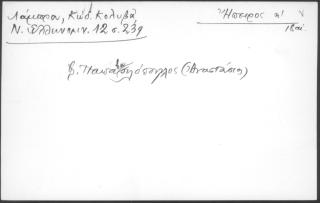 Λάμπρου, Κώδ. Κολυβᾶ
Ν. Ἑλληνομν. 12 σ. 239
Ἤπειρος
18 αἰ.
β. Παπα
όπουλος (Ἀναστάσιος)